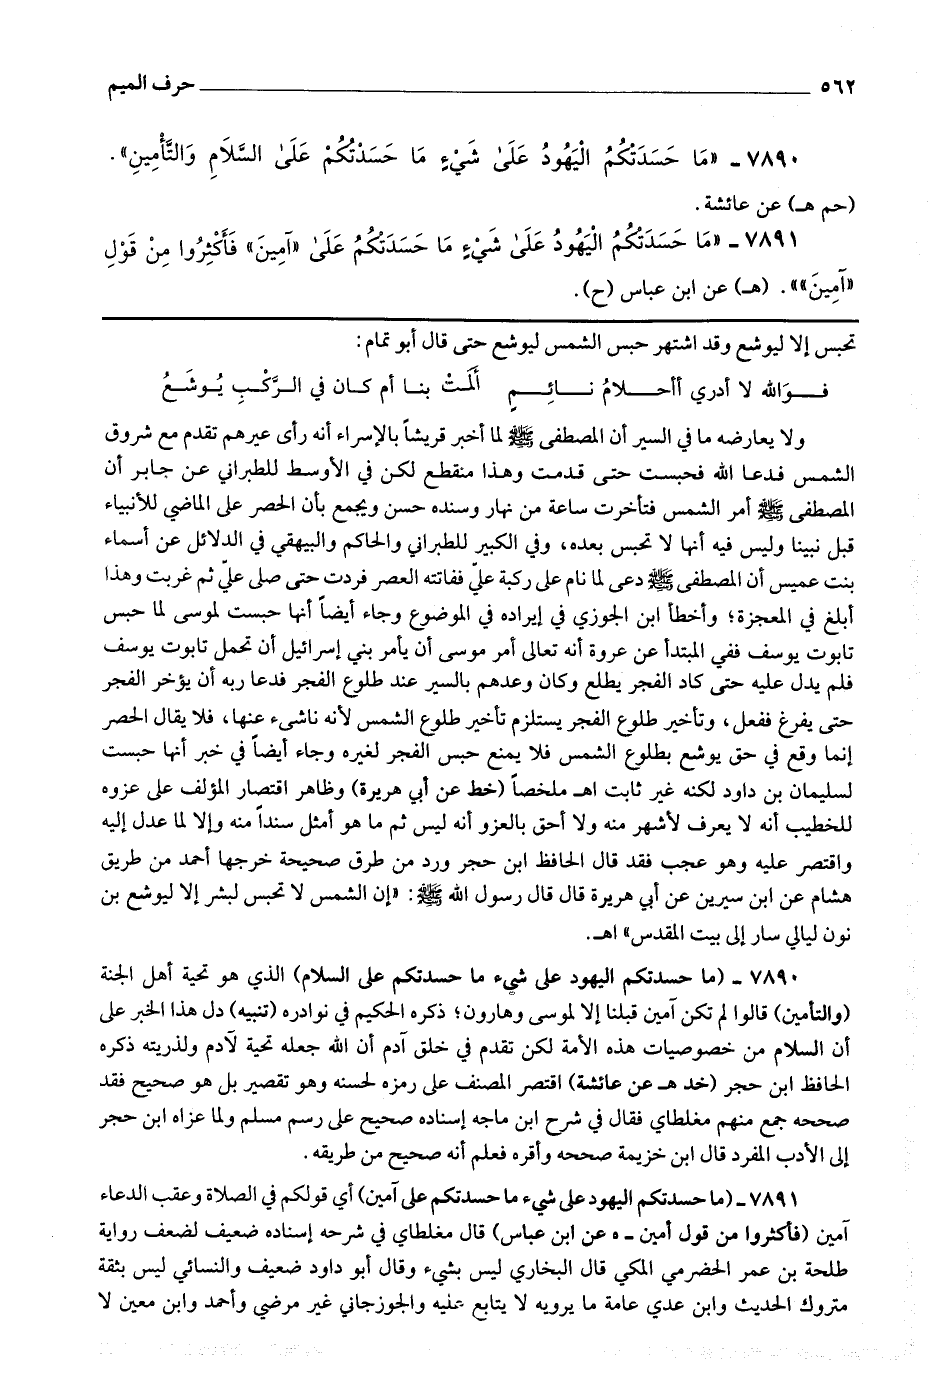 ٥٦٢ حرف الميم
٧٨٩٠ - «مَا حَسَدَتْكُمُ الْيَهُودُ عَلَىٰ شَيْءٍ مَا حَسَدَتْكُمْ عَلَىٰ السَّلَامِ وَالتَّأْمِينِ».
(حم هـ) عن عائشة.
٧٨٩١ - «مَا حَسَدَتْكُمُ الْيَهُودُ عَلَىٰ شَيْءٍ مَا حَسَدَتْكُمُ عَلَىٰ «آمِينَ» فَأَكْثِرُوا مِنْ قَوْلِ
«آمِينَ»». (هـ) عن ابن عباس (ح).
تحبس إلا ليوشع وقد اشتهر حبس الشمس ليوشع حتى قال أبو تمام:
فوَالله لا أدري أأحلامُ نائِمٍ ألَمَتْ بنا أم كان في الرَّكْبِ يُوشَعُ
ولا يعارضه ما في السير أن المصطفى ﷺ لما أخبر قريشاً بالإسراء أنه رأى عيرهم تقدم مع شروق
الشمس فدعا الله فحبست حتى قدمت وهذا منقطع لكن في الأوسط للطبراني عن جابر أن
المصطفى ﷺ أمر الشمس فتأخرت ساعة من نهار وسنده حسن ويجمع بأن الحصر على الماضي للأنبياء
قبل نبينا وليس فيه أنها لا تحبس بعده، وفي الكبير للطبراني والحاكم والبيهقي في الدلائل عن أسماء
بنت عميس أن المصطفى ﷺ دعى لما نام على ركبة عليّ ففاتته العصر فردت حتى صلى عليّ ثم غربت وهذا
أبلغ في المعجزة؛ وأخطأ ابن الجوزي في إيراده في الموضوع وجاء أيضاً أنها حبست لموسى لما حبس
تابوت يوسف ففي المبتدأ عن عروة أنه تعالى أمر موسى أن يأمر بني إسرائيل أن تحمل تابوت يوسف
فلم يدل عليه حتى كاد الفجر يطلع وكان وعدهم بالسير عند طلوع الفجر فدعا ربه أن يؤخر الفجر
حتى يفرغ ففعل، وتأخير طلوع الفجر يستلزم تأخير طلوع الشمس لأنه ناشىء عنها، فلا يقال الحصر
إنما وقع في حق يوشع بطلوع الشمس فلا يمنع حبس الفجر لغيره وجاء أيضاً في خبر أنها حبست
لسليمان بن داود لكنه غير ثابت اهـ ملخصاً (خط عن أبي هريرة) وظاهر اقتصار المؤلف على عزوه
للخطيب أنه لا يعرف لأشهر منه ولا أحق بالعزو أنه ليس ثم ما هو أمثل سنداً منه وإلا لما عدل إليه
واقتصر عليه وهو عجب فقد قال الحافظ ابن حجر ورد من طرق صحيحة خرجها أحمد من طريق
هشام عن ابن سيرين عن أبي هريرة قال قال رسول الله ﷺ: «إن الشمس لا تحبس لبشر إلا ليوشع بن
نون ليالي سار إلى بيت المقدس» اهـ.
٧٨٩٠ - (ما حسدتكم اليهود على شيء ما حسدتكم على السلام) الذي هو تحية أهل الجنة
(والتأمين) قالوا لم تكن آمين قبلنا إلا لموسى وهارون؛ ذكره الحكيم في نوادره (تنبيه) دل هذا الخبر على
أن السلام من خصوصيات هذه الأمة لكن تقدم في خلق آدم أن الله جعله تحية لآدم ولذريته ذكره
الحافظ ابن حجر (خد هـ عن عائشة) اقتصر المصنف على رمزه لحسنه وهو تقصير بل هو صحيح فقد
صححه جمع منهم مغلطاي فقال في شرح ابن ماجه إسناده صحيح على رسم مسلم ولما عزاه ابن حجر
إلى الأدب المفرد قال ابن خزيمة صححه وأقره فعلم أنه صحيح من طريقه.
٧٨٩١ - (ما حسدتكم اليهود على شيء ما حسدتكم على آمين) أي قولكم في الصلاة وعقب الدعاء
آمين (فأكثروا من قول أمين - ه عن ابن عباس) قال مغلطاي في شرحه إسناده ضعيف لضعف رواية
طلحة بن عمر الحضرمي المكي قال البخاري ليس بشيء وقال أبو داود ضعيف والنسائي ليس بثقة
متروك الحديث وابن عدي عامة ما يرويه لا يتابع عليه والجوزجاني غير مرضي وأحمد وابن معين لا